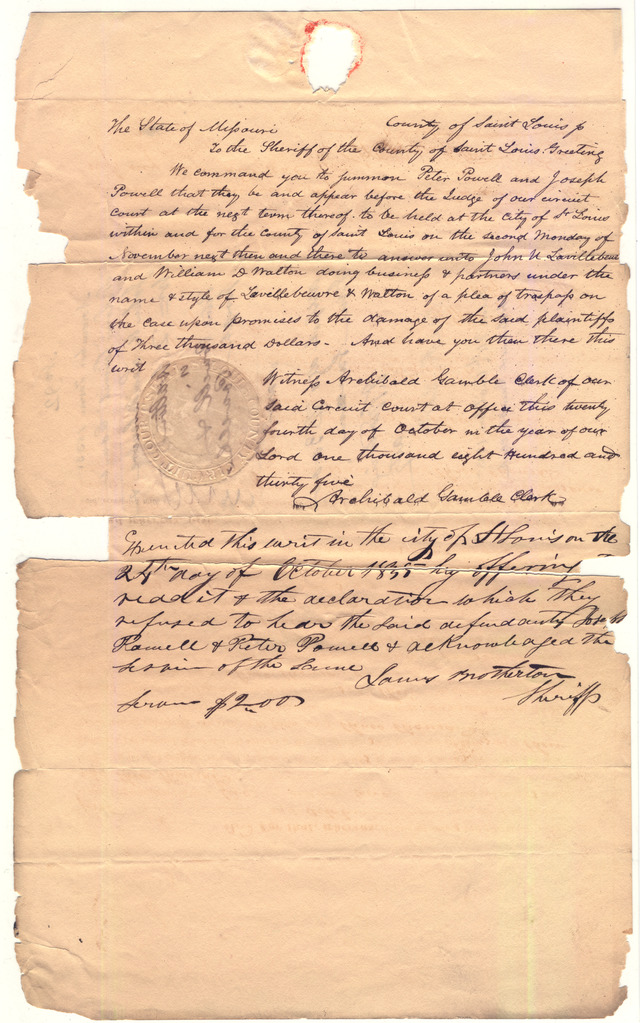 The State of Missouri County of Saint Louis ss
To the Sheriff of the County of Saint Louis. Greeting
We command you to summon Peter Powell and Joseph
Powell that they be and appear before the Judge of our circuit
court at the next term thereof. to be held at the City of St Louis
within and for the County of Saint Louis on the second Monday of
November next then and there to answer unto John N Lavillebeu
and William D Walton doing business & partners under the
name & style of Lavillebeuvre & Walton of a plea of trespass on
the case upon promises to the damage of the said plaintiffs
of Three thousand Dollars - And have you then there this
writ
Witness Archibald Gamble Clerk of our
said Circuit court at office this twenty
fourth day of October in the year of our
Lord one thousand eight Hundred and
thirty five
Archibald Gamble Clerk
Executed this writ in the city of St Louis on the
24th day of October 1835 by offering to
read it & the declaration which they
refused to hear the said defendants Joseph
Powell & Peter Powell & acknowledged the
of the same
James Brotherton
Sheriff
$2.00